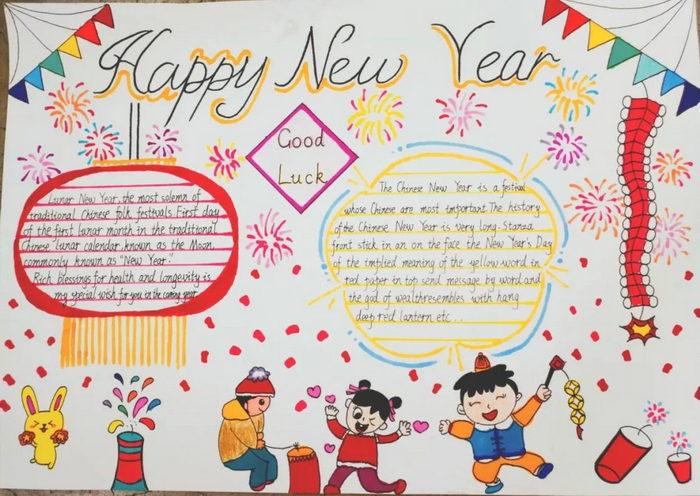 Happy New Year
Good
Luck
Lunar New Year, the most solemn of
traditional Chinese folk festivals. First day
of the first lunar month in the traditional
Chinese lunar calendar, known as the Moon,
commonly known as "New Year."
Rich blessings for health and longevity is
my special wish for you in the coming year.
The Chinese New Year is a festival
whose Chinese are most important. The history
of the Chinese New Year is very long. Stanza
front stick in an on the face the New Year's Day
of the implied meaning of the yellow word in
red paper in top send message by word and
the god of wealthresembles with hang
deep red lantern etc...